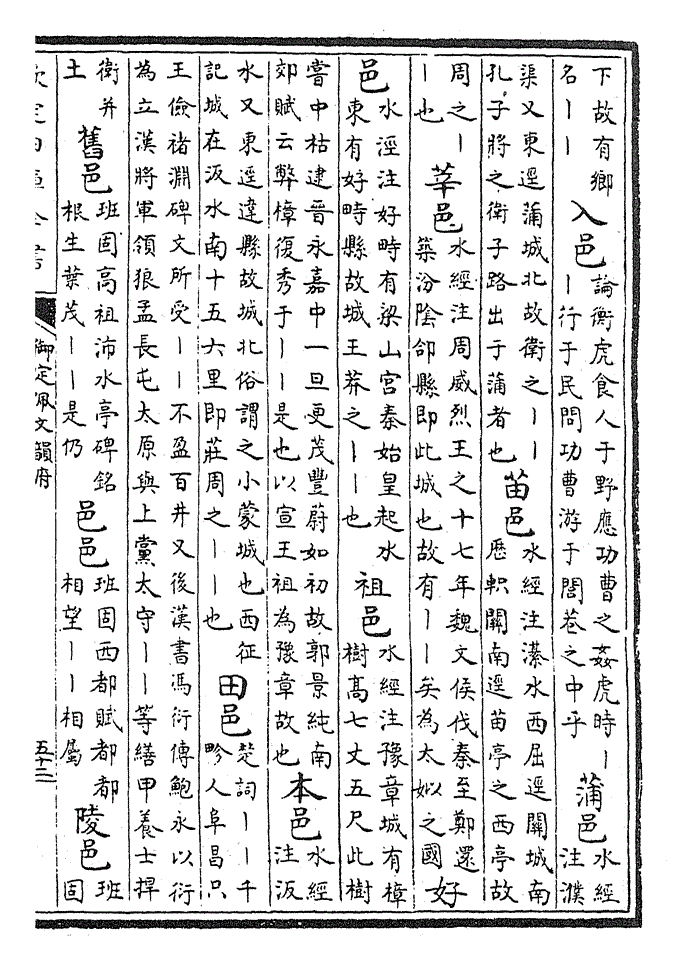 下故有鄉
名丨丨
入邑
論衡虎食人于野應功曹之姦虎時丨
丨行于民間功曹游于閭巷之中乎
蒲邑
水經
注濮
渠又東逕蒲城北故衛之丨丨
孔子將之衛子路出于蒲者也
苗邑
水經注瀵水西屈逕關城南
歷軹關南逕苗亭之西亭故
周之丨
丨也
莘邑
水經注周威烈王之十七年魏文侯伐秦至鄭還
築汾陰郃縣即此城也故有丨丨矣為太姒之國
好
邑
水涇注好畤有梁山宮秦始皇起水
東有好畤縣故城王莽之丨丨也
祖邑
水經注豫章城有樟
樹高七丈五尺此樹
嘗中枯逮晉永嘉中一旦更茂豐蔚如初故郭景純南
郊賦云弊樟復秀于丨丨是也以宣王祖為豫章故也
本邑
水經
注汳
水又東逕違縣故城北俗謂之小蒙城也西征
記城在汳水南十五六里即莊周之丨丨也
田邑
楚詞丨丨千
畛人阜昌只
王儉褚淵碑文所受丨丨不盈百井又後漢書馮衍傳鮑永以衍
為立漢將軍領狼孟長屯太原與上黨太守丨丨等繕甲養士捍
衛并
土
舊邑
班固高祖沛水亭碑銘
根生葉茂丨丨是仍
邑邑
班固西都賦都都
相望丨丨相屬
陵邑
班
固
欽定四庫全書
御定佩文韻府
五十二